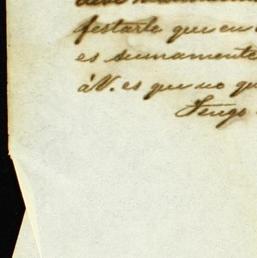 festarle que en
es sumamente
á V. es que no qu
Tengo